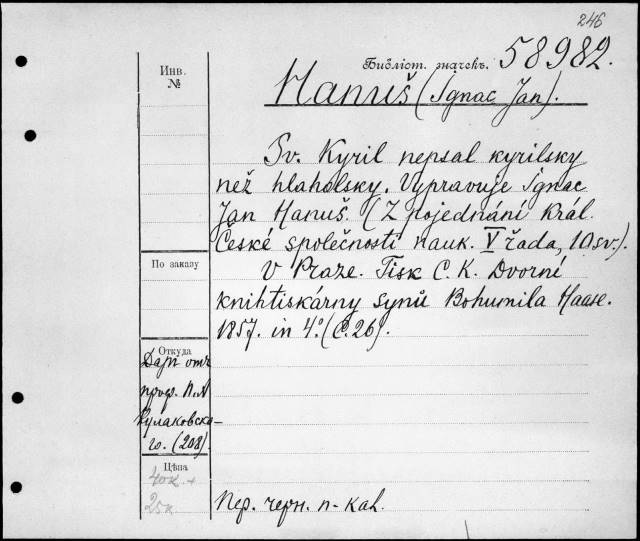 246
Библіот. значекъ. 58982.
Инв.
№
Hanuš (Ignac Jan).
Sv. Kyril nepsal kyrilsky
než hlaholsky. Vypravuje Ignac
Jan Hanuš. (Z pojednání král.
České společnosti nauk. V řada, 10 sv.).
По заказу
V Praze. Tisk C. K. Dvorné
knihtiskárny synů Bohumila Haase.
1857. in 4º. (C. 26).
Откуда
Даръ отъ
проф. П. А.
Кулаковска-
го. (208)
Цѣна
40к. +
25к
Пер. черн. п- кал.